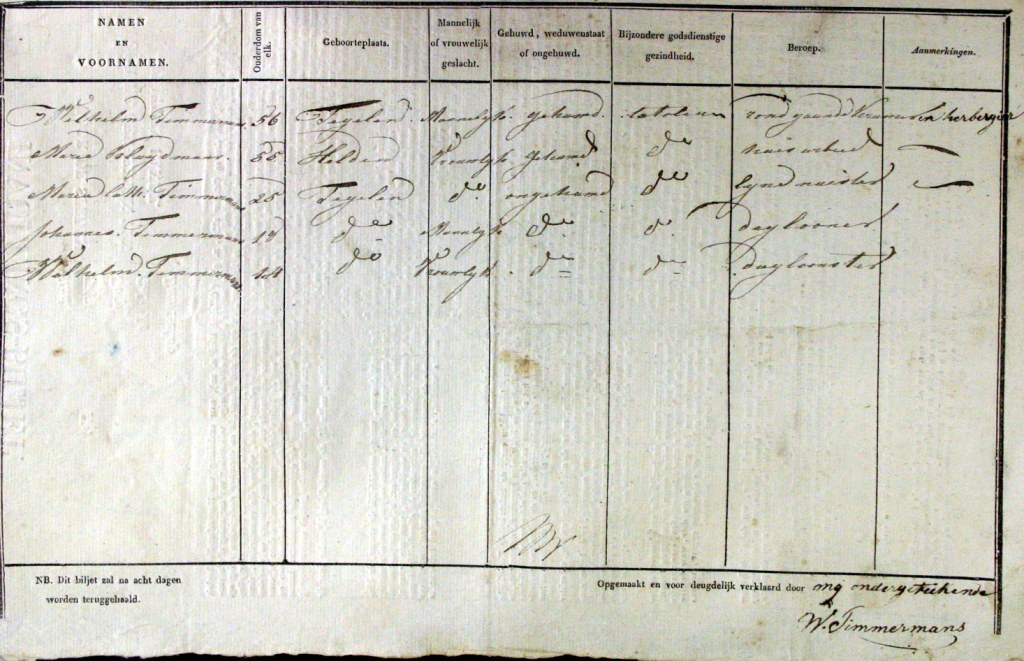 NAMEN EN VOORNAMEN. Ouderdom van elk. Geboorteplaats. Mannelijk of vrouwelijk geslacht. Gehuwd, weduwenstaat of ongehuwd. Bijzondere godsdienstige gezindheid. Beroep. Aanmerkingen.
Wilhelm Timmermans 56 Tegelen Mannelijk gehuwd en herbergier
Maria 55 Helden Vrouwlyk gehuwd do
Maria Cath. Timmermans 25 Tegelen do ongehuwd do
Johannes Timmermans 18 do Mannlyk do do daglooner
Wilhelm. Timmermans 14 do Vrouwlyk do do dagloonster
NB. Dit biljet zal na acht dagen
worden teruggehaald.
Opgemaakt en voor deugdelijk verklaard door my ondergeteekende
W. Timmermans